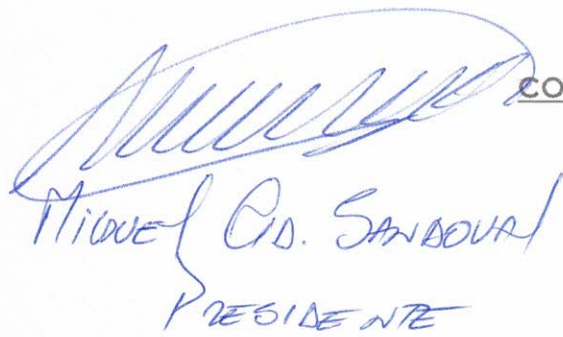 CO
MIGUEL CID. SANDOVAL
PRESIDENTE